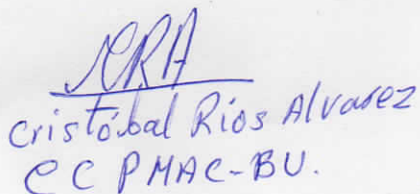 CRA
Cristóbal Ríos Alvarez
CC PMAC-BU.